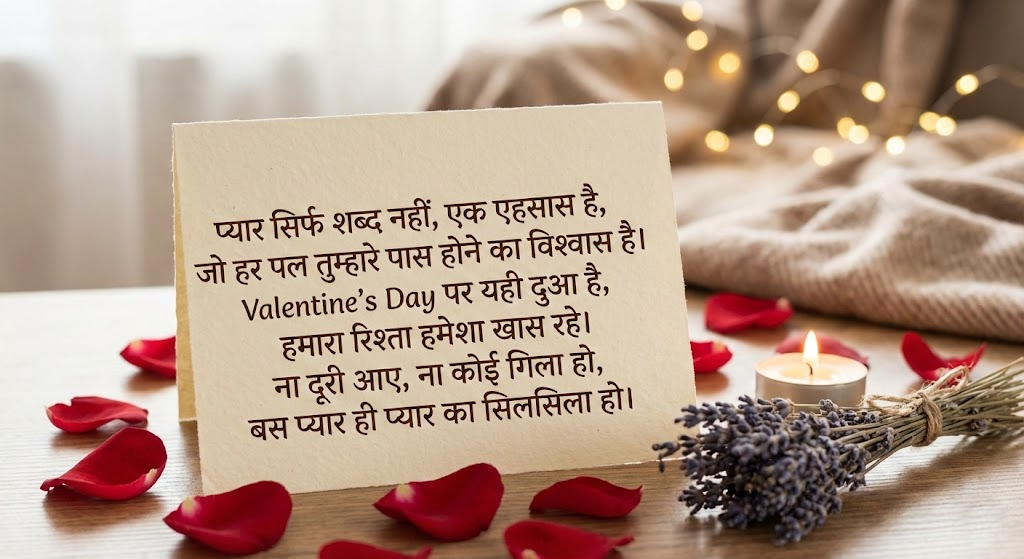 प्यार सिर्फ शब्द नहीं, एक एहसास है,
जो हर पल तुम्हारे पास होने का विश्वास है।
Valentine's Day पर यही दुआ है,
हमारा रिश्ता हमेशा खास रहे।
ना दूरी आए, ना कोई गिला हो,
बस प्यार ही प्यार का सिलसिला हो।